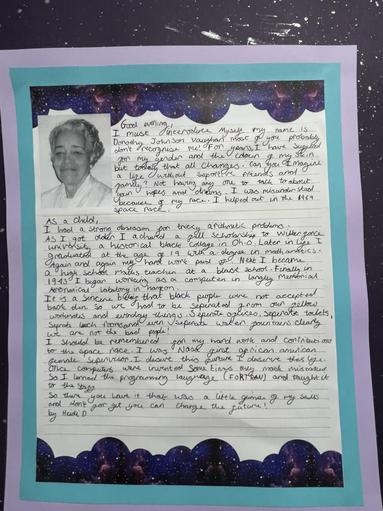 Good evening!
I must interoduce myself my name is
Dorothy Johnson Vaughan most of you probably
don't recognise me. For years I have suffered
for my gender and the colour of my skin
but today that all changes. Can you imagine
a life without suportive friends and
family? Not having any one to talk to about
your hopes and dreams. I was misunderstood
because of my race. I helped out in the 1969
space race.
As a child,
I had a strong obsession for tricky arithmetic problems.
As I got older I achived a full scholarship to Wilberforce
university a historical black collage in Ohio. Later in life I
graduated at the age of 19 with a degree in mathematics.
Again and again my hard work paid of. Next I became
a high school maths teacher at a black school. Finally in
1943 I began working as a computer in langley Memorial
Aeronautical labatory in hampton.
It is a sincere that black people were not accepted
back then. So we had to be seperated from our fellow
workmates and everyday things. Seperate offices, seperate toilets,
seperate lunch rooms and even seperate water fountains clearly
we are not the bad people!
I should be remembered for my hard work and contributions
to the space race. I was Nasa first african american
female supervisor. I deserve this future I deserve this life.
Once computers were invented some things may
So I learned the programing laungage (FORTRAN) and taught it
to the
So there you have it that was a little glimse of my skills
and don't forget you can change the future!
by Heidi D